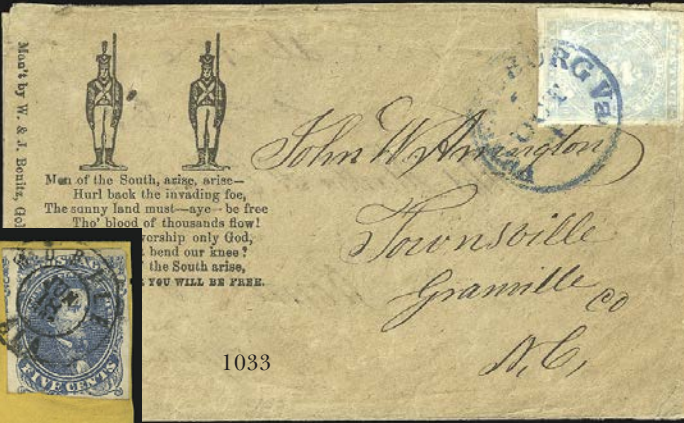 Man't by W. & J. Bonitz, Gol
BURG Va.
OCT
1
Men of the South, arise, arise—
Hurl back the invading foe,
The sunny land must—aye—be free
Tho' blood of thousands flow!
worship only God,
bend our knee?
the South arise,
YOU WILL BE FREE.
John W. Amington
Townsville
Granville Co
N.C,
1033
FIVE CENTS